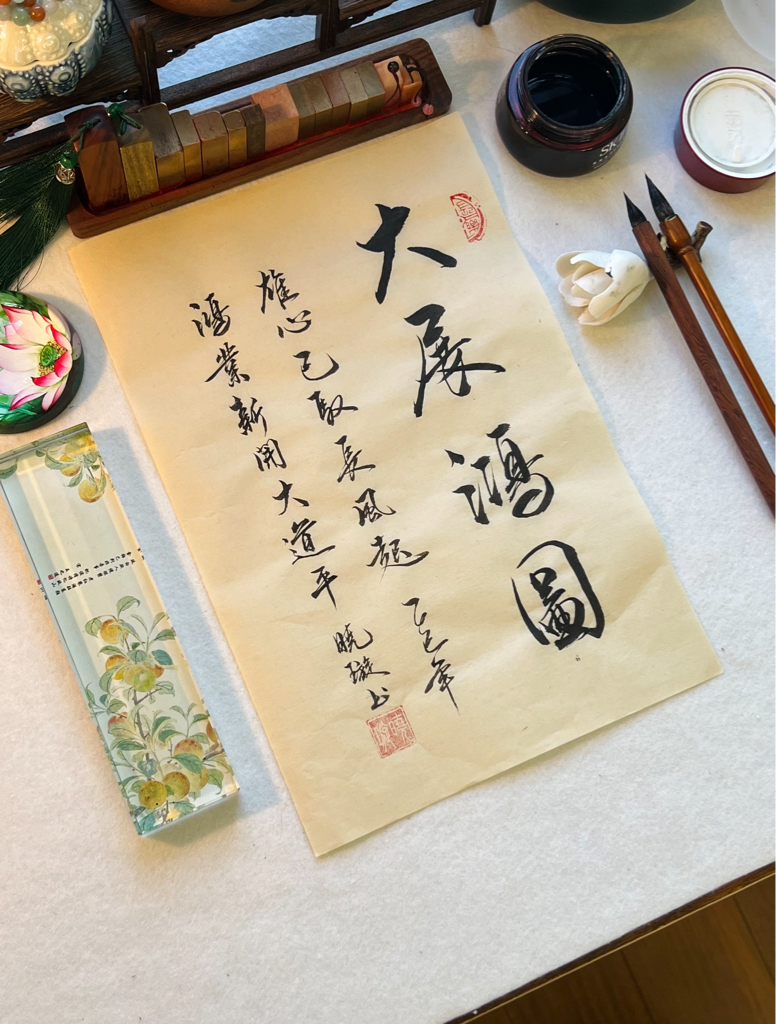 大展鴻圖
雄心已取長風起
乙巳年
鴻業新開大道平
曉璇书
SK